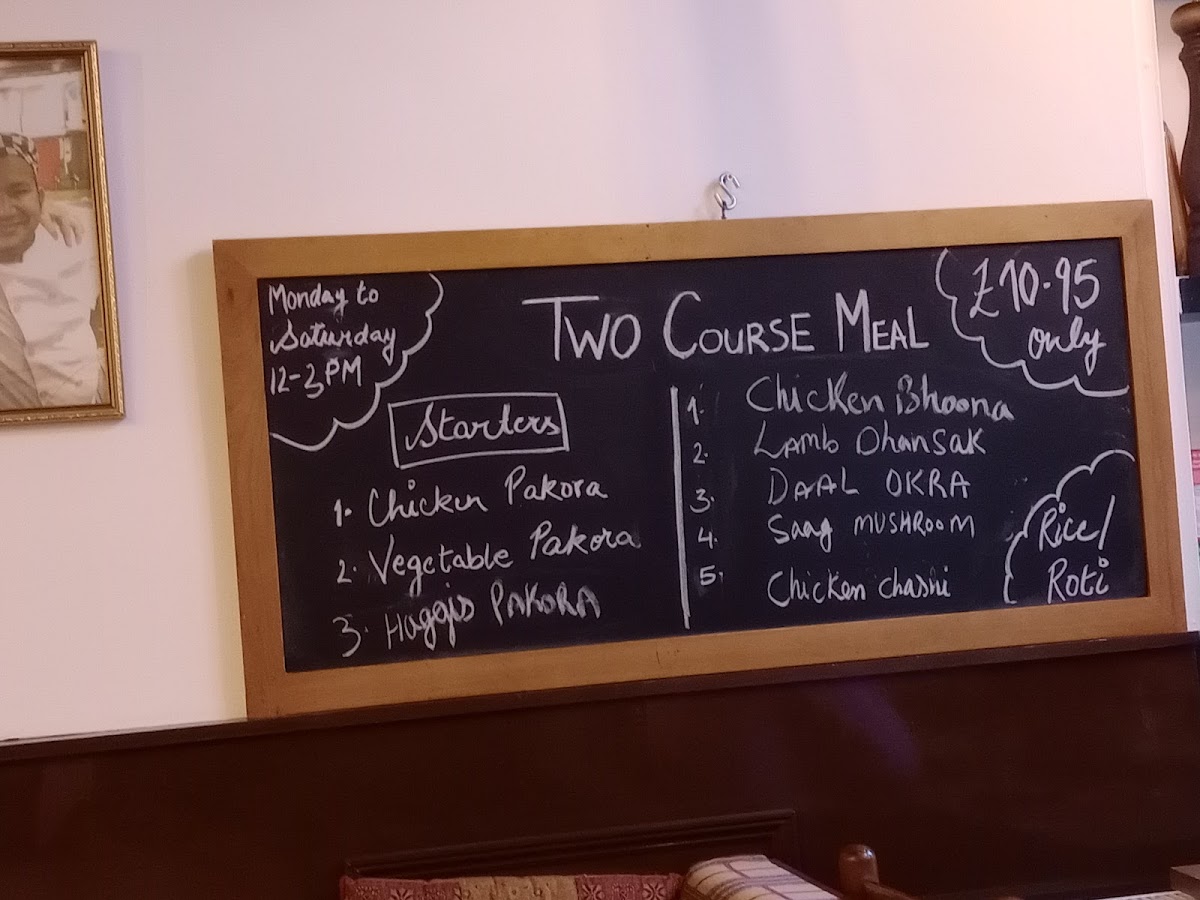 Monday to
Saturday
12-3PM
TWO COURSE MEAL
£10.95
only
Starters
1. Chicken Pakora
2. Vegetable Pakora
3. Haggis PAKORA
1. Chicken Bhoona
2. Lamb Dhansak
3. DAAL OKRA
4. Saag MUSHROOM
5. Chicken chasni
Rice/
Roti